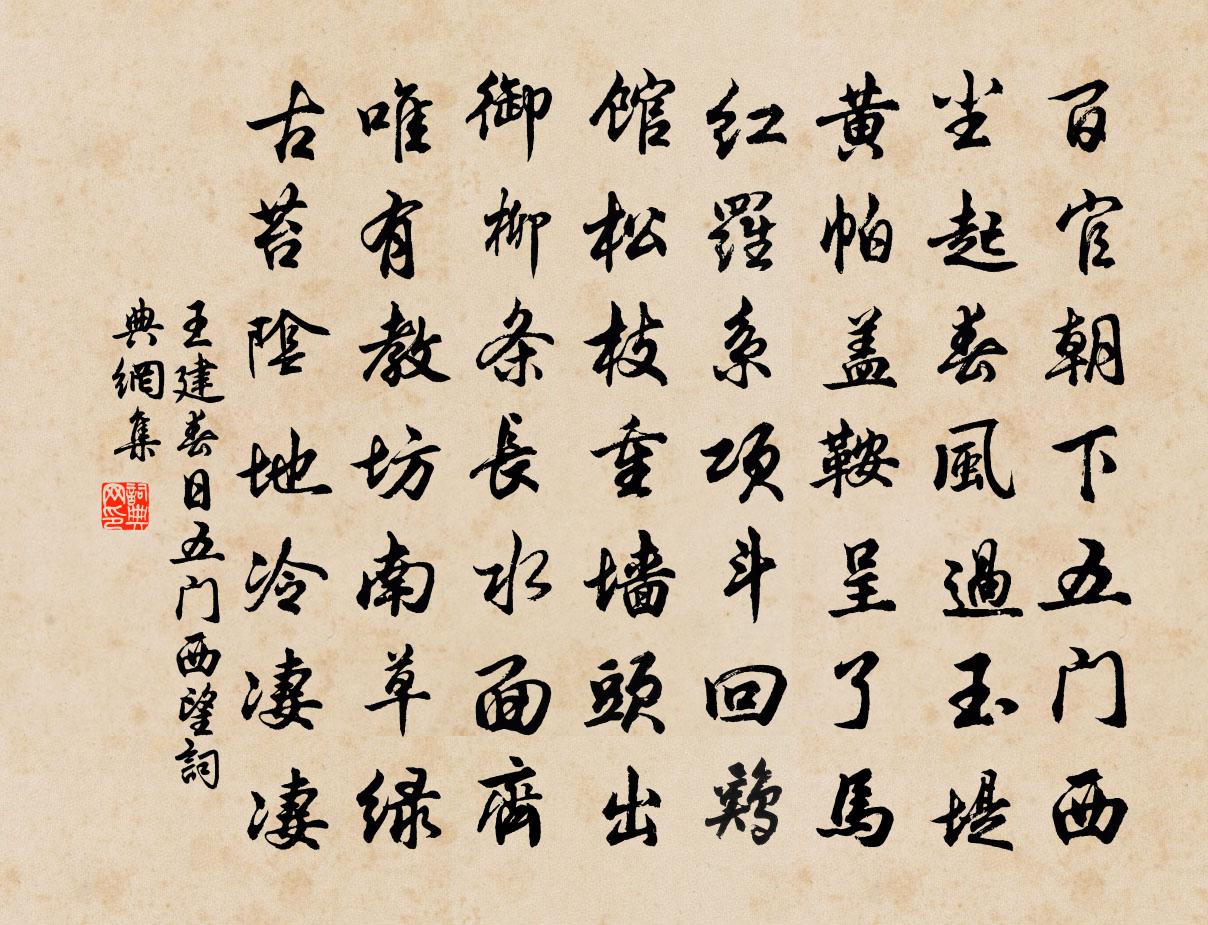 百官朝下五门西
尘起春風過玉堤
黄帕盖鞍呈了馬
红羅系项斗回鷄
馆松枝重墙頭出
御柳条長水面齊
唯有教坊南草绿
古苔陰地冷凄凄
王建春日五门西望詞
典網集
詞典
网印